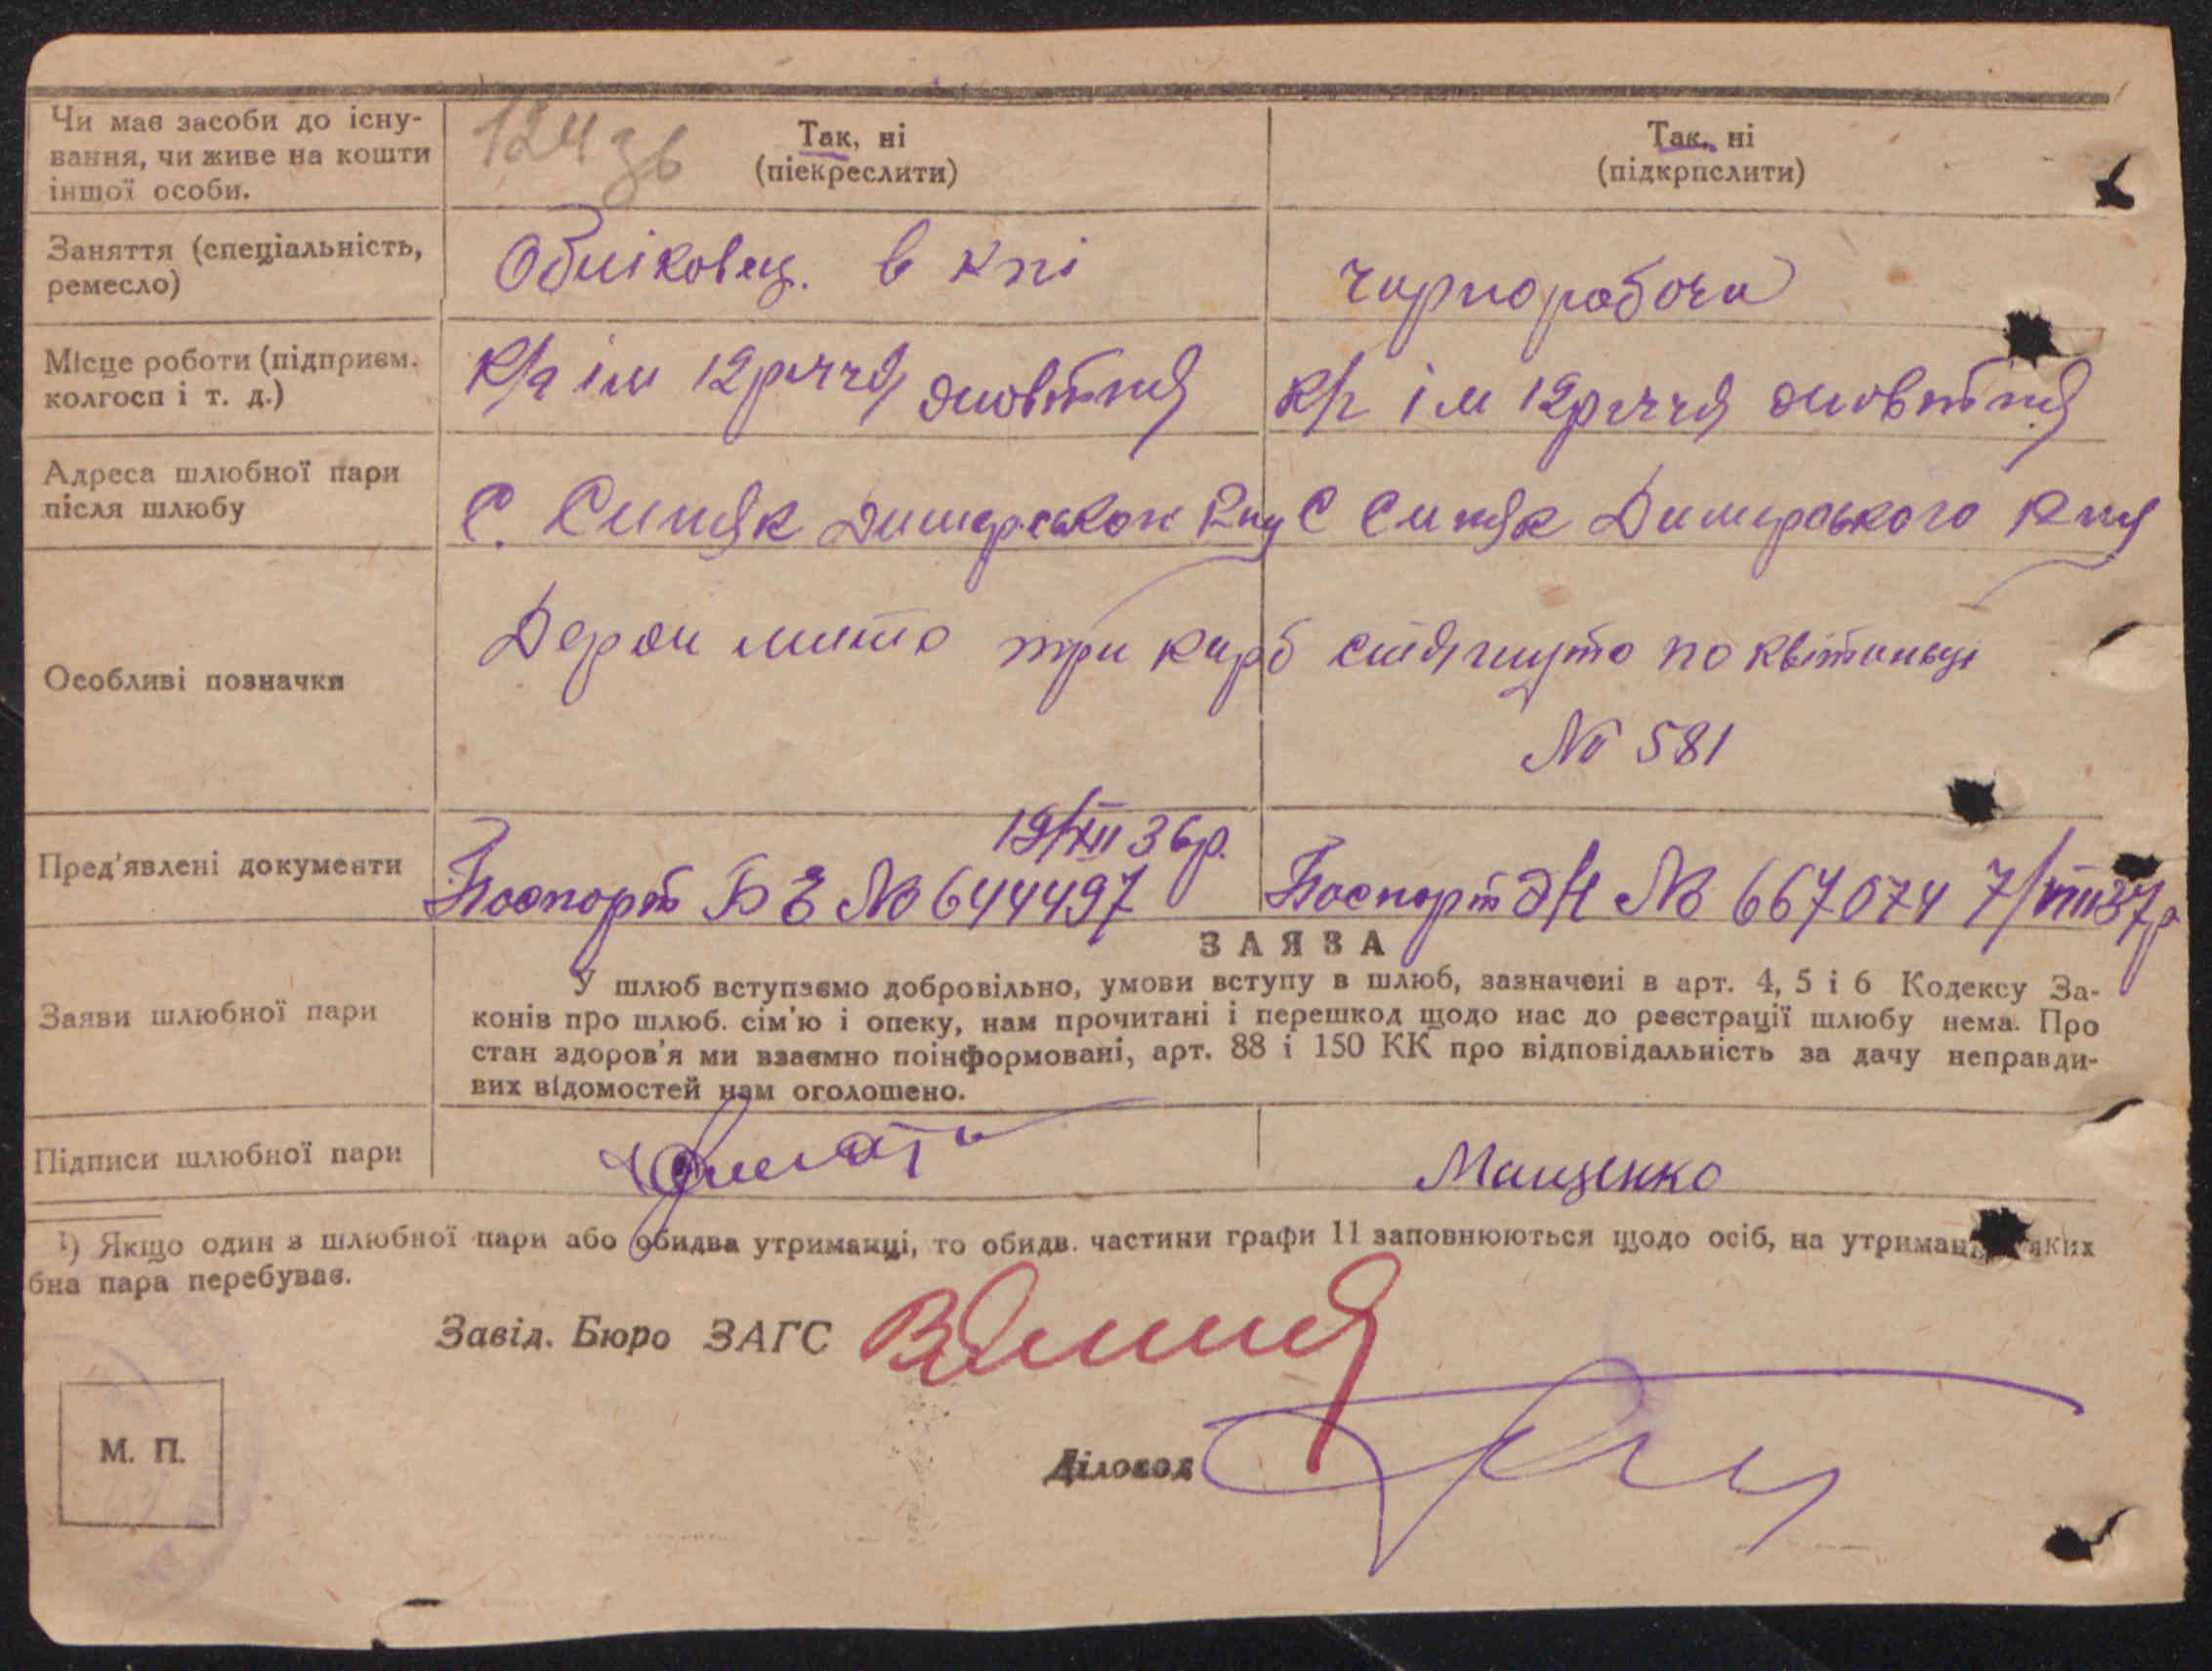 Чи має засоби до існу-
вання, чи живе на кошти
іншої особи.
124 зв
Так, ні
(піекреслити)
Так, ні
(підкрпслити)
Заняття (спеціальність,
ремесло)
Обліковец. в кпі
чорноробоча
Місце роботи (підприєм.
колгосп і т. д.)
К/г ім 12річчя жовтня
К/г ім 12річчя жовтня
Адреса шлюбної пари
після шлюбу
С. Синяк Димерськог
С Синяк Димерського
Особливі позначки
Держ мито три карб стягнуто по квітанції
№ 581
Пред'явлені документи
19/XII 36р.
Паспорт № 644497
Паспорт № 667074 7/VIII 37р
Заяви шлюбної пари
ЗАЯЗА
У шлюб вступаємо добровільно, умови вступу в шлюб, зазначені в арт. 4, 5 і 6 Кодексу За-
конів про шлюб. сім'ю і опеку, нам прочитані і перешкод щодо нас до реєстрації шлюбу нема. Про
стан здоров'я ми взаємно поінформовані, арт. 88 і 150 КК про відповідальність за дачу неправди-
вих відомостей нам оголошено.
Підписи шлюбної пари
Мащенко
¹) Якщо один з шлюбної пари або обидва утриманці, то обидв. частини графи 11 заповнюються щодо осіб, на утриман яких
бна пара перебуває.
Завід. Бюро ЗАГС
М. П.
Діловод